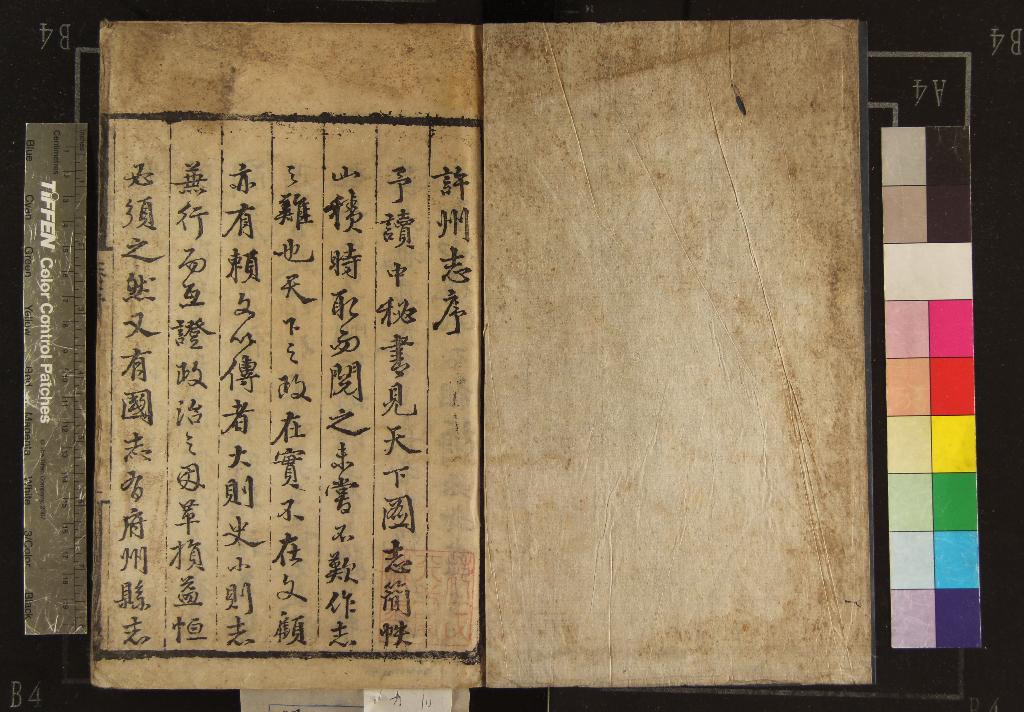 許州志序
予讀中秘書見天下圖志簡帙
山積時取而閱之未嘗不歎作志
之難也天下之政在實不在文顧
亦有賴文以傳者大則史小則志
兼行而互證政治之因革損益恒
必須之然又有國志有府州縣志
TIFFEN Color Control Patches
Blue Cyan Green Yellow Red Magenta White 3/Color Black
Centimetres
B4
B4
A4
B4
B4